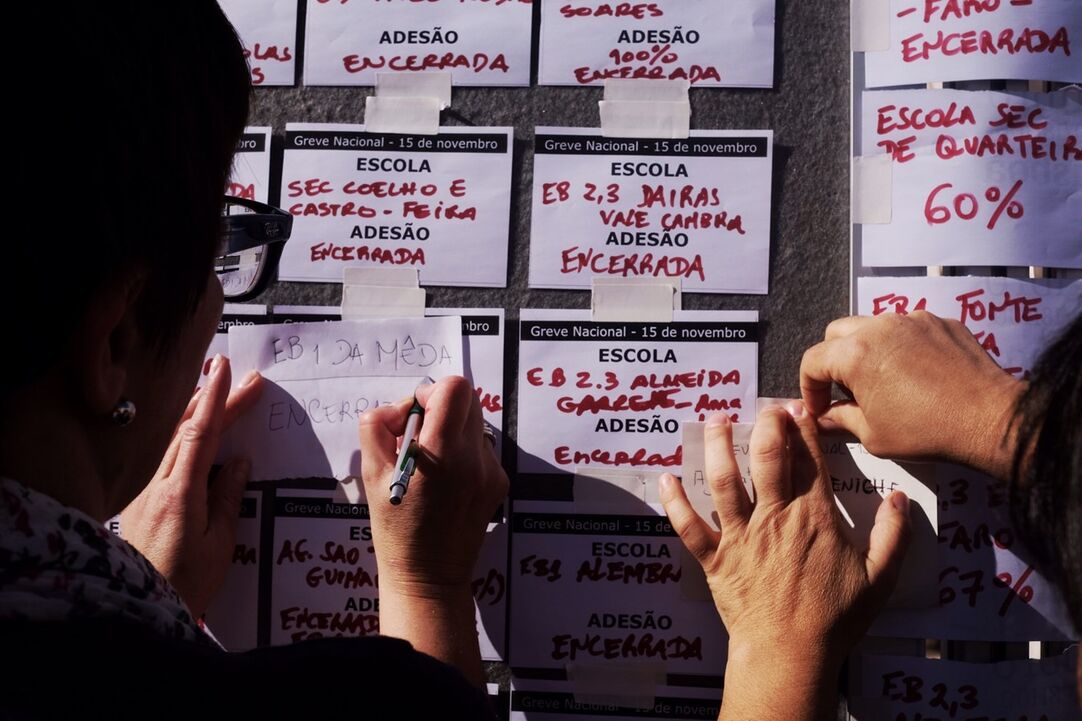 ADESÃO
ENCERRADA
SOARES
ADESÃO
100%
ENCERRADA
- FARO -
ENCERRADA
Greve Nacional - 15 de novembro
ESCOLA
SEC COELHO E
CASTRO - FEIRA
ADESÃO
ENCERRADA
Greve Nacional - 15 de novembro
ESCOLA
EB 2,3 DAIRAS
VALE CAMBRA
ADESÃO
ENCERRADA
ESCOLA SEC
DE QUARTEIRA
60%
EB 1 DA MÊDA
Greve Nacional - 15 de novembro
ESCOLA
EB 2.3 ALMEIDA
GARRETT - Ama
ADESÃO
Encerrad
EB1 FONTE
ENICHE
Greve Nacional
ESCOLA
AG. SÃO
GUIMA
ENCERRADA
Greve Nacional - 15 de
ESCOLA
EB1 ALEMBR
ADESÃO
ENCERRADA
FARO
67%
Greve Nacional - 15 de novembro
EB 2,3